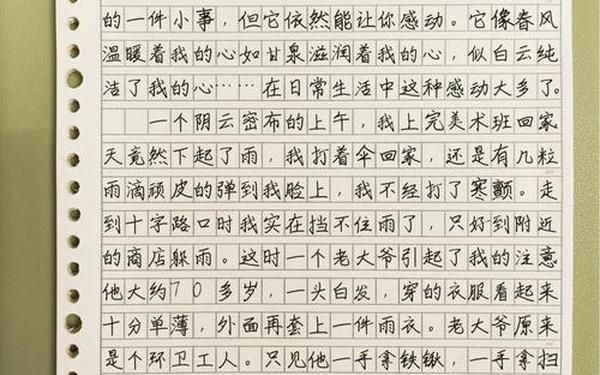 的一件小事，但它依然能让你感动。它像春风
温暖着我的心如甘泉滋润着我的心，似白云纯
洁了我的心……在日常生活中这种感动大多了。
一个阴云密布的上午，我上完美术班回家
天竟然下起了雨，我打着伞回家，还是有几粒
雨滴顽皮的弹到我脸上，我不经打了寒颤。走
到十字路口时我实在挡不住雨了，只好到附近
的商店躲雨。这时一个老大爷引起了我的注意
他大约70多岁，一头白发，穿的衣服看起来
十分单薄，外面再套上一件雨衣。老大爷原来
是个环卫工人。只见他一手拿铁锹，一手拿扫